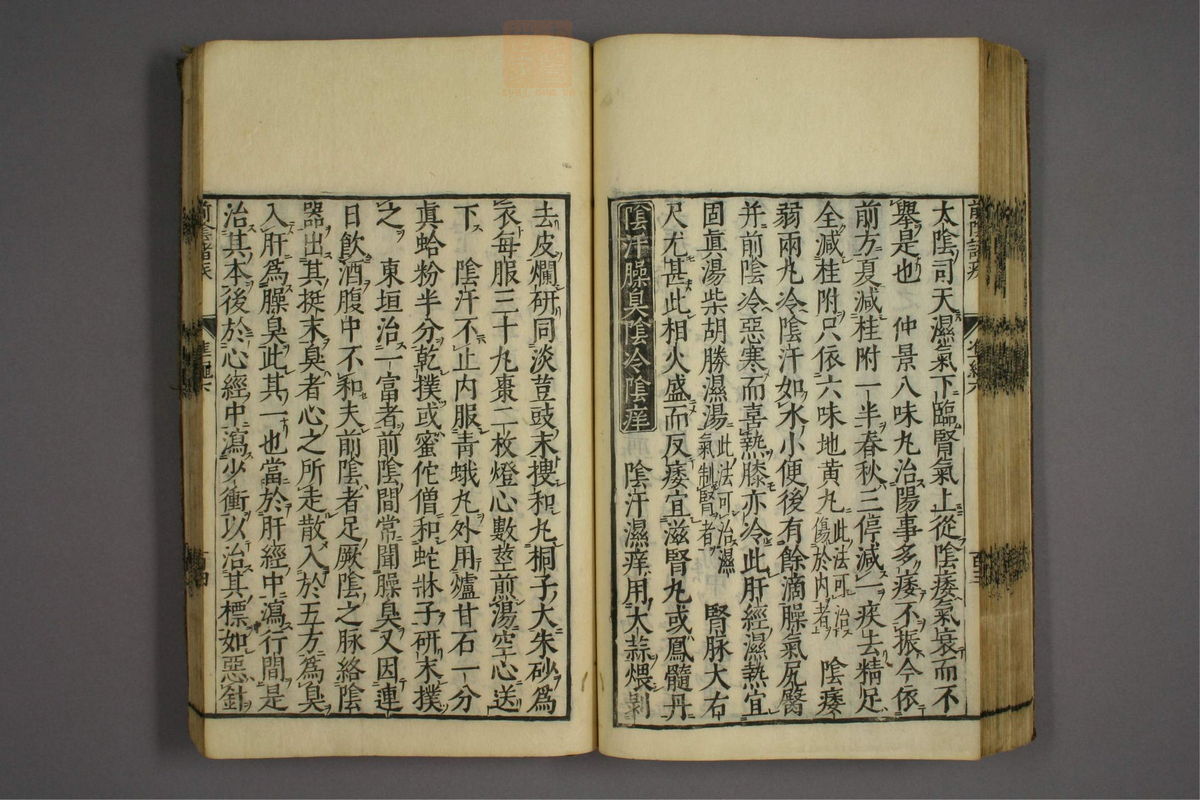 太陰司天濕氣下臨腎氣上從陰痿氣衰而不
舉是也　仲景八味丸治陽事多痿不振今依
前方夏減桂附一半春秋三停減一疾去精足
全減桂附只依六味地黄丸此法可治傷於內者　陰痿
弱兩丸冷陰汗如水小便後有餘滴臊氣尻臀
并前陰冷惡寒而喜熱膝亦冷此肝經濕熱宜
固真湯柴胡勝濕湯此法可治濕氣制腎者　腎脉大右
尺尤甚此相火盛而反痿宜滋腎丸或鳳髓丹
陰汗臊臭陰冷陰痒　陰汗濕痒用大蒜煨剝
去皮爛研同淡荳豉末搜和丸桐子大朱砂爲
衣每服三十丸棗二枚燈心數莖煎湯空心送
下　陰汗不止内服青蛾丸外用爐甘石一分
真蛤粉半分乾撲或蜜佗僧和蛇牀子研末撲
之　東垣治一富者前陰間常聞臊臭又因連
日飲酒腹中不和夫前陰者足厥陰之脉絡陰
器出其挺末臭者心之所走散入於五方爲臭
入肝爲臊臭此其一也當於肝經中瀉行間是
治其本後於心經中瀉少衝以治其標如惡針